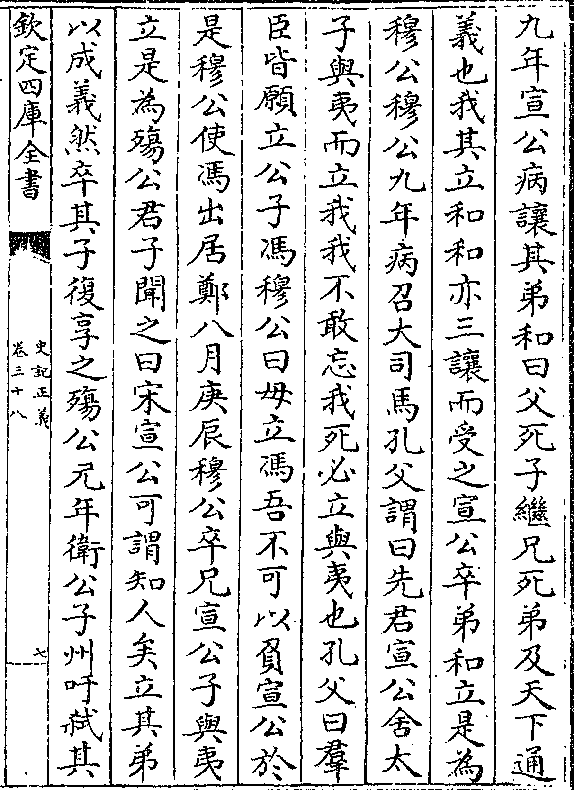 九年宣公病讓其弟和曰父死子繼兄死弟及天下通
義也我其立和和亦三讓而受之宣公卒弟和立是為
穆公穆公九年病召大司馬孔父謂曰先君宣公舍太
子與夷而立我我不敢忘我死必立與夷也孔父曰羣
臣皆願立公子馮穆公曰毋立馮吾不可以負宣公於
是穆公使馮出居鄭八月庚辰穆公卒兄宣公子與夷
立是為殤公君子聞之曰宋宣公可謂知人矣立其弟
以成義然卒其子復享之殤公元年衛公子州吁弑其
欽定四庫全書
史記正義
卷三十八
七